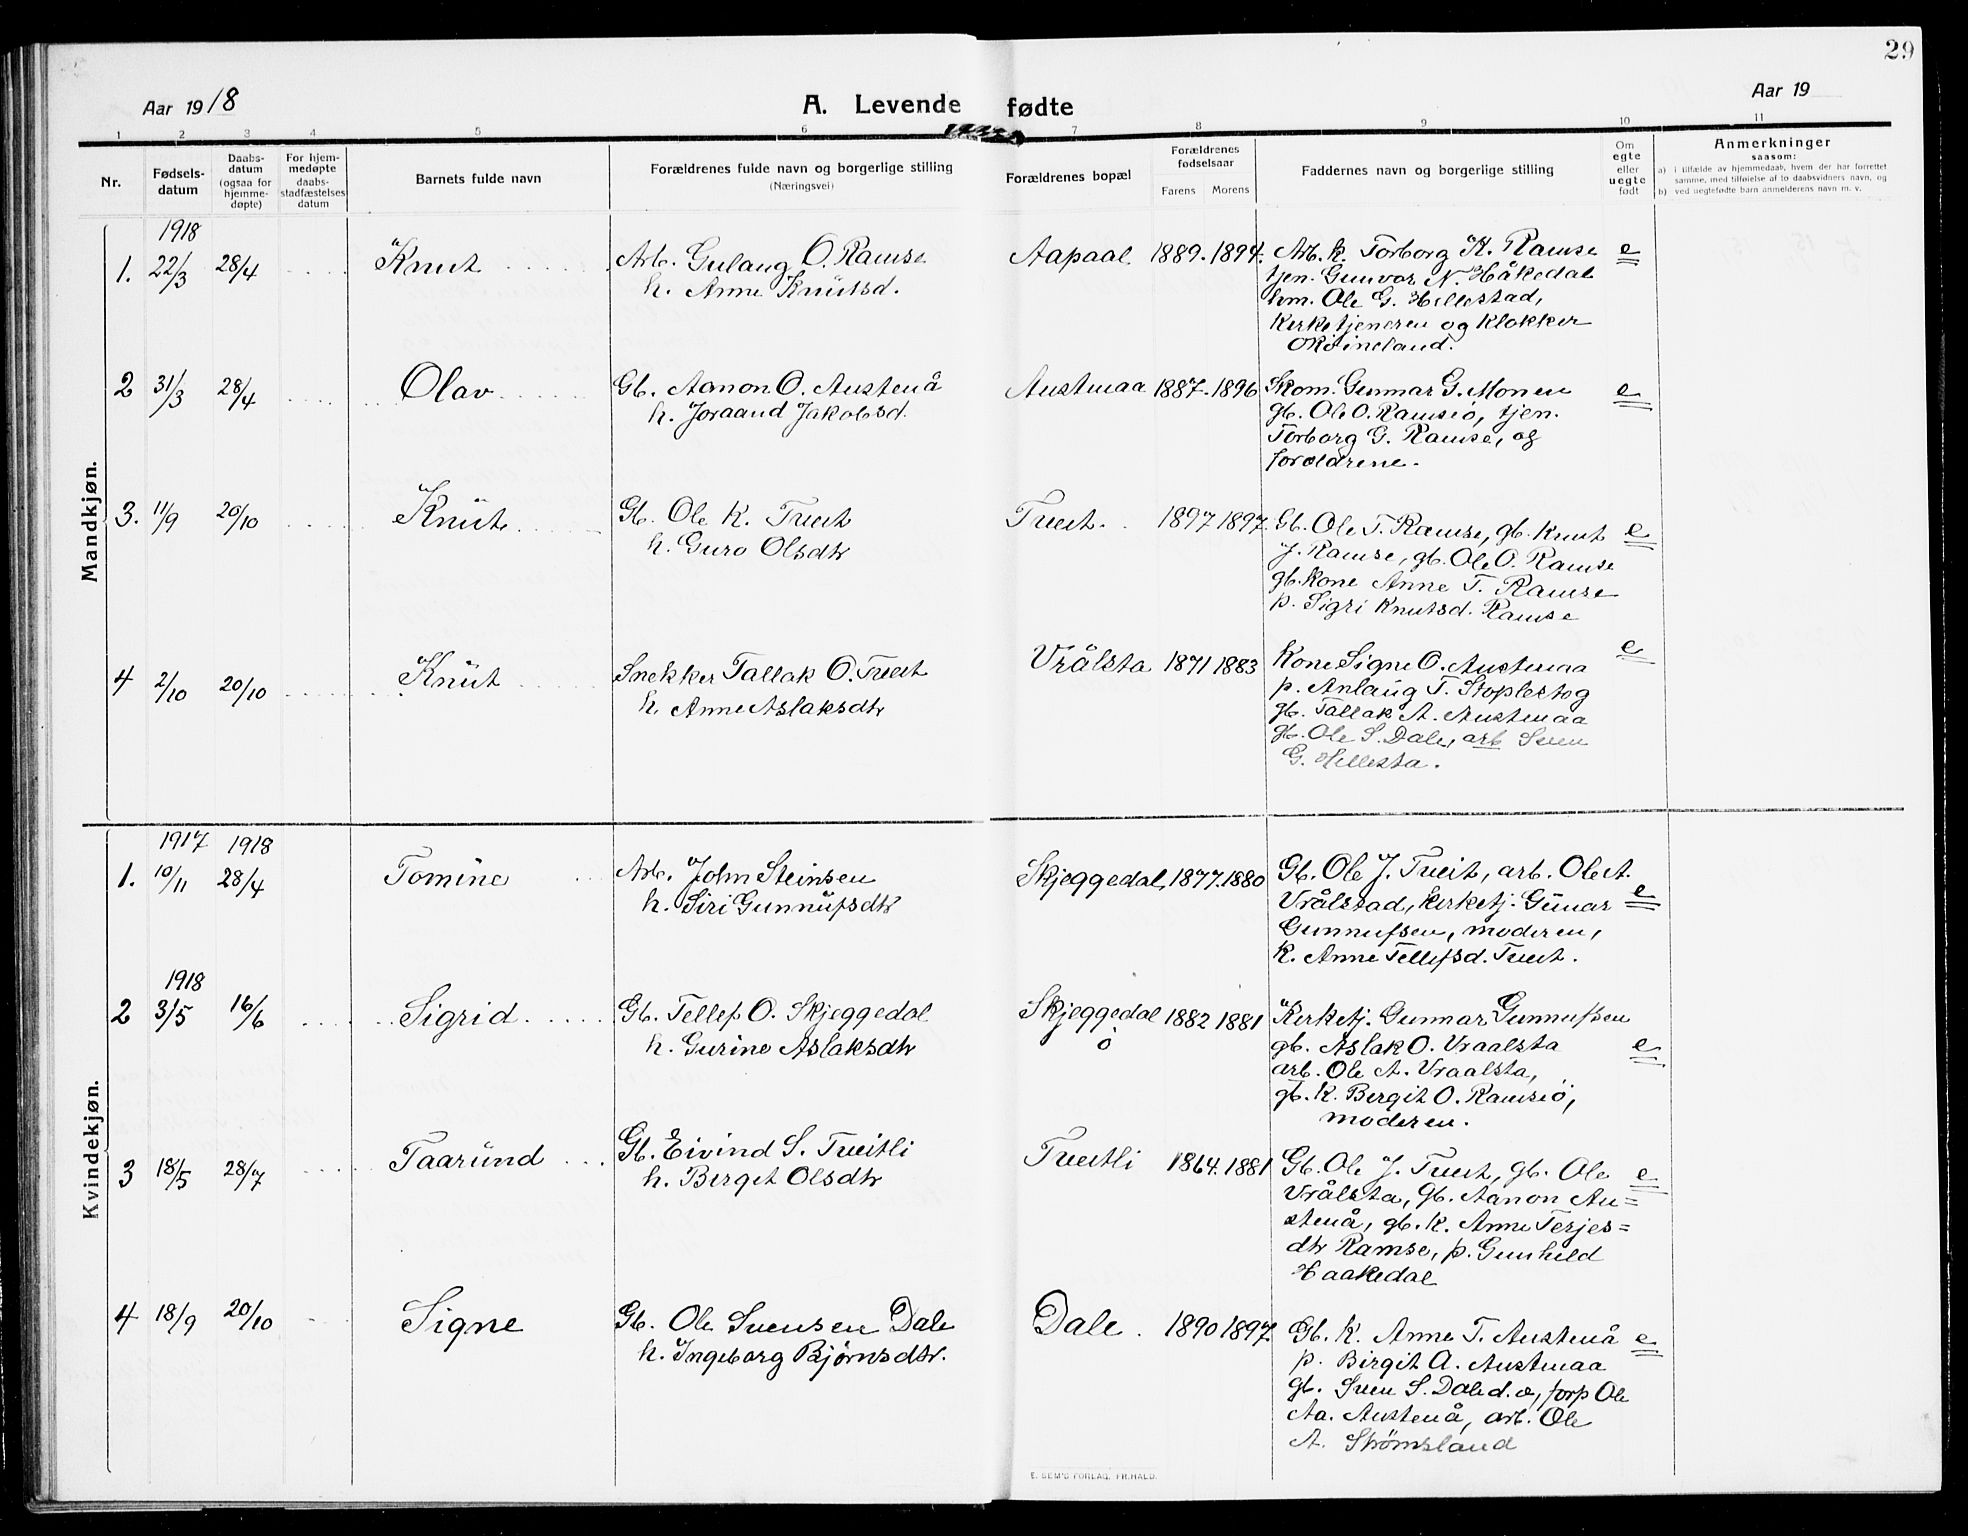 29
Aar 1918
A. Levende fødte
Aar 19
1 2 3 4 5 6 7 8 9 10 11
Nr.
Fødsels-
datum
Daabs-
datum
(ogsaa for
hjemme-
døpte)
For hjem-
medøpte
daabs-
stadfæstelses
datum
Barnets fulde navn
Forældrenes fulde navn og borgerlige stilling
(Næringsvei)
Forældrenes bopæl
Forældrenes
fødselsaar
Farens Morens
Faddernes navn og borgerlige stilling
Om
egte
eller
uegte
født
Anmerkninger
saasom:
a) i tilfælde av hjemmedaab, hvem der har forrettet
samme, med tilføielse af to daabsvidners navn, og
b) ved uegtefødte barn anmelderens navn m. v.
Mandkjøn.
1918
1. 22/3 28/4 Knut Arb. Gulaug O. Ramse Aapaal 1889. 1894. Arb. k. Torborg K. Ramse e
h. Anne Knutsd. tjen. Gunvor N. Håkedal
hm. Ole G. Hillestad,
Kirketjeneren og klokker
2 31/3 28/4 Olav Gb. Aanon O. Austenå Austenaa 1887. 1896 Skom. Gunnar G. Monen e
h. Joraand Jakobsd. gb. Ole O. Ramsiø, tjen.
Torborg G. Ramse, og
foreldrene.
3. 11/9 20/10 Knut Gb. Ole K. Tveit Tveit. 1897 1897. Gb. Ole T. Ramse, gb. Knut e
h. Guro Olsdtr J. Ramse, gb. Ole O. Ramse
gb. kone Anne T. Ramse
p. Sigri Knutsd. Ramse
4 2/10 20/10 Knut Snekker Tallak O. Tveit Vrålsta 1871 1883 Kone Signe O. Austenaa e
h. Anne Aslaksdtr p. Anlaug T. Stoplestog
gb. Tallak A. Austenaa
gb. Ole S. Dale, arb Sven
G. Hillesta.
Kvindekjøn.
1917 1918
1. 10/11 28/4 Tomine Arb. John Steinsen Skjeggedal, 1877. 1880 Gb. Ole J. Tveit, arb. Ole A.
h. Siri Gunnufsdtr Vrålstad, kirketj. Gunar e
Gunnufsen, moderen,
k. Anne Tellefsd. Tveit.
1918
2 3/5 16/6 Sigrid Gb. Tellef O. Skjeggedal Skjeggedal 1882 1881 Kirketj. Gunnar Gunnufsen
h. Gurine Aslaksdtr ö gb. Aslak O. Vraalsta e
arb. Ole A. Vraalsta,
gb. k. Bergit O. Ramsiö,
moderen.
3 18/5 28/7 Taarund Gb. Eivind S. Tveitli Tveitli 1864. 1881 Gb. Ole J. Tveit, gb. Ole e
h. Bergit Olsdtr Vrålsta, gb. Aanon Au=
stenå, gb. k. Anne Terjes=
dtr Ramse, p. Gunhild
Haakedal
4 18/9 20/10 Signe Gb. Ole Svensen Dale Dale. 1890 1897 Gb. k. Anne T. Austenå e
h. Ingeborg Bjørnsdtr. p. Birgit A. Austenaa
gb. Sven S. Dale d. e, forp Ole
Aa. Austenå, arb. Ole
A. Strømsland
E. SEM'S FORLAG, FR.HALD.